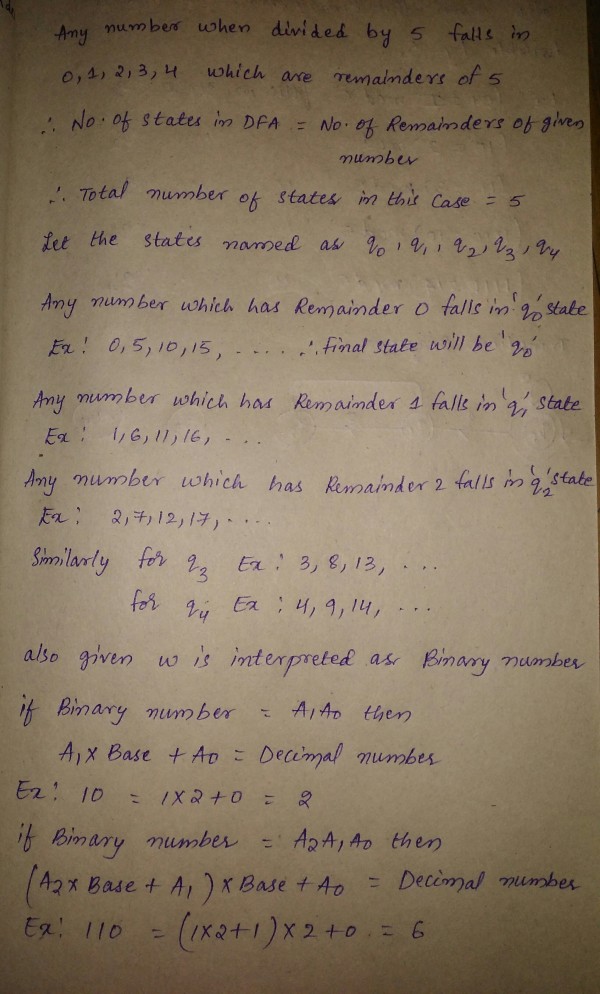 Any number when divided by 5 falls in
0,1,2,3,4 which are remainders of 5
∴ No. of states in DFA = No. of Remainders of given
number
∴ Total number of states in this case = 5
Let the states named as q0, q1, q2, q3, q4
Any number which has Remainder 0 falls in 'q0' state
Ex: 0,5,10,15, ..... ∴ final state will be 'q0'
Any number which has Remainder 1 falls in 'q1' state
Ex: 1,6,11,16, ....
Any number which has Remainder 2 falls in 'q2' state
Ex: 2,7,12,17, ....
Similarly for q3 Ex: 3,8,13, ...
for q4 Ex: 4,9,14, ...
also given w is interpreted as Binary number
if Binary number = A1A0 then
A1 x Base + A0 = Decimal number
Ex: 10 = 1x2+0 = 2
if Binary number = A2A1A0 then
(A2 x Base + A1) x Base + A0 = Decimal number
Ex: 110 = (1x2+1) x 2+0 = 6